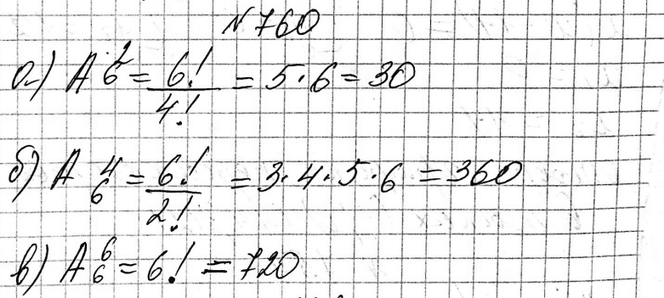 №760
а) A₆² = 6!/4! = 5·6 = 30
б) A₆⁴ = 6!/2! = 3·4·5·6 = 360
в) A₆⁶ = 6! = 720